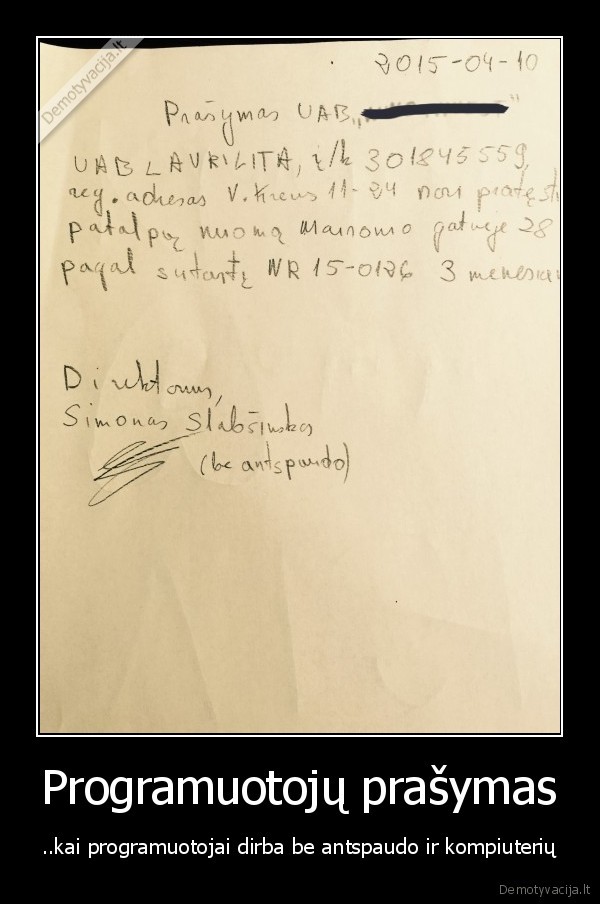 Demotyvacija.lt
2015-04-10
Prašymas UAB „ "
UAB LAURILITA, į/k 301845559,
reg. adresas V. Krėvės 11-24 nori pratęsti
patalpų nuomą Maironio gatvėje 28
pagal sutartį NR 15-0126 3 mėnesiam
Direktorius,
Simonas Slabšinskas
(be antspaudo)
Programuotojų prašymas
..kai programuotojai dirba be antspaudo ir kompiuterių
Demotyvacija.lt